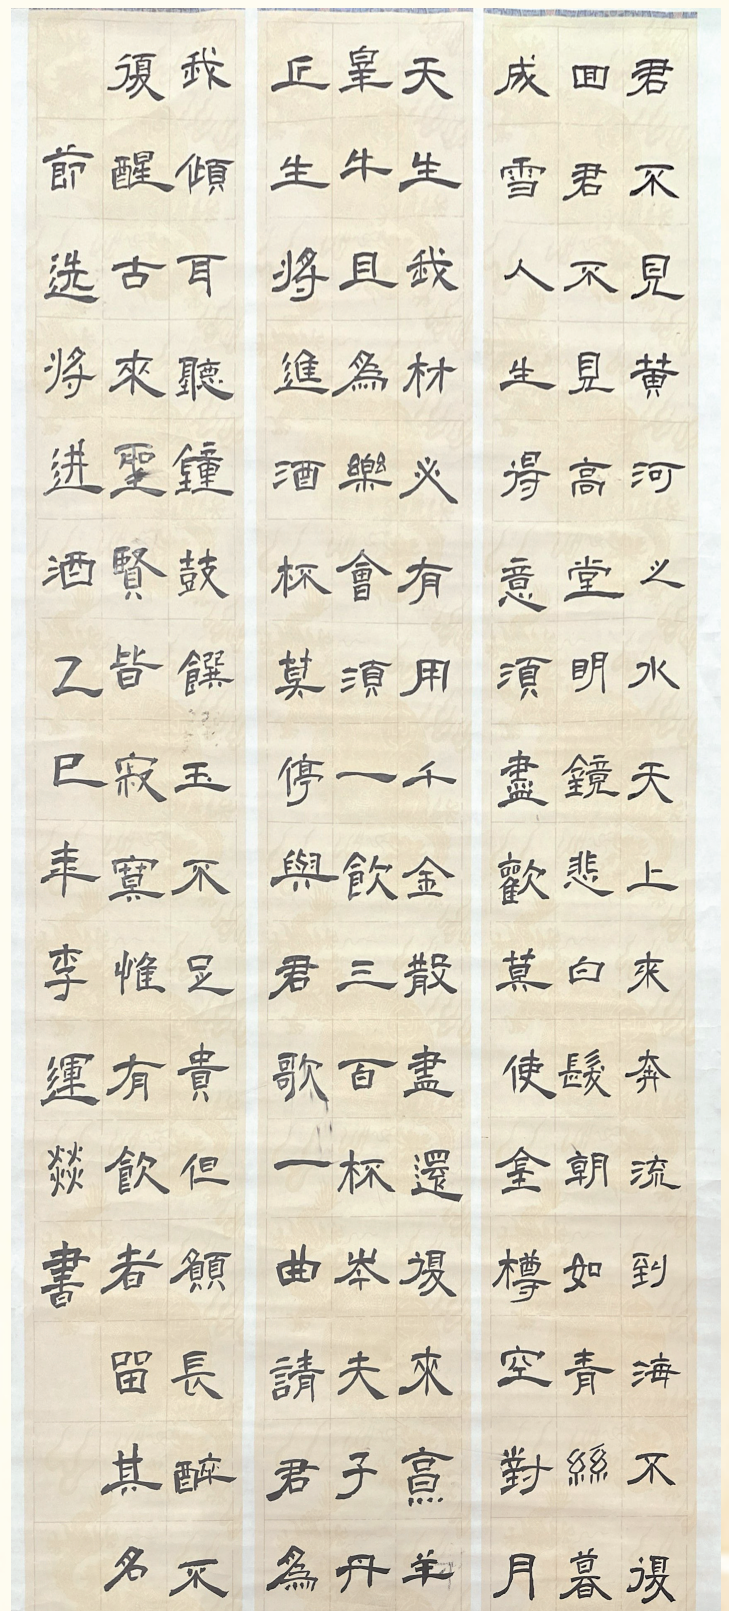 君不見黄河之水天上來奔流到海不復
回君不見高堂明鏡悲白髮朝如青絲暮
成雪人生得意須盡歡莫使金樽空對月
天生我材必有用千金散盡還復來烹羊
宰牛且為樂會須一飲三百杯岑夫子丹
丘生將進酒杯莫停與君歌一曲請君為
我傾耳聽鐘鼓饌玉不足貴但願長醉不
復醒古來聖賢皆寂寞惟有飲者留其名
節选將进酒乙巳年李運燚書